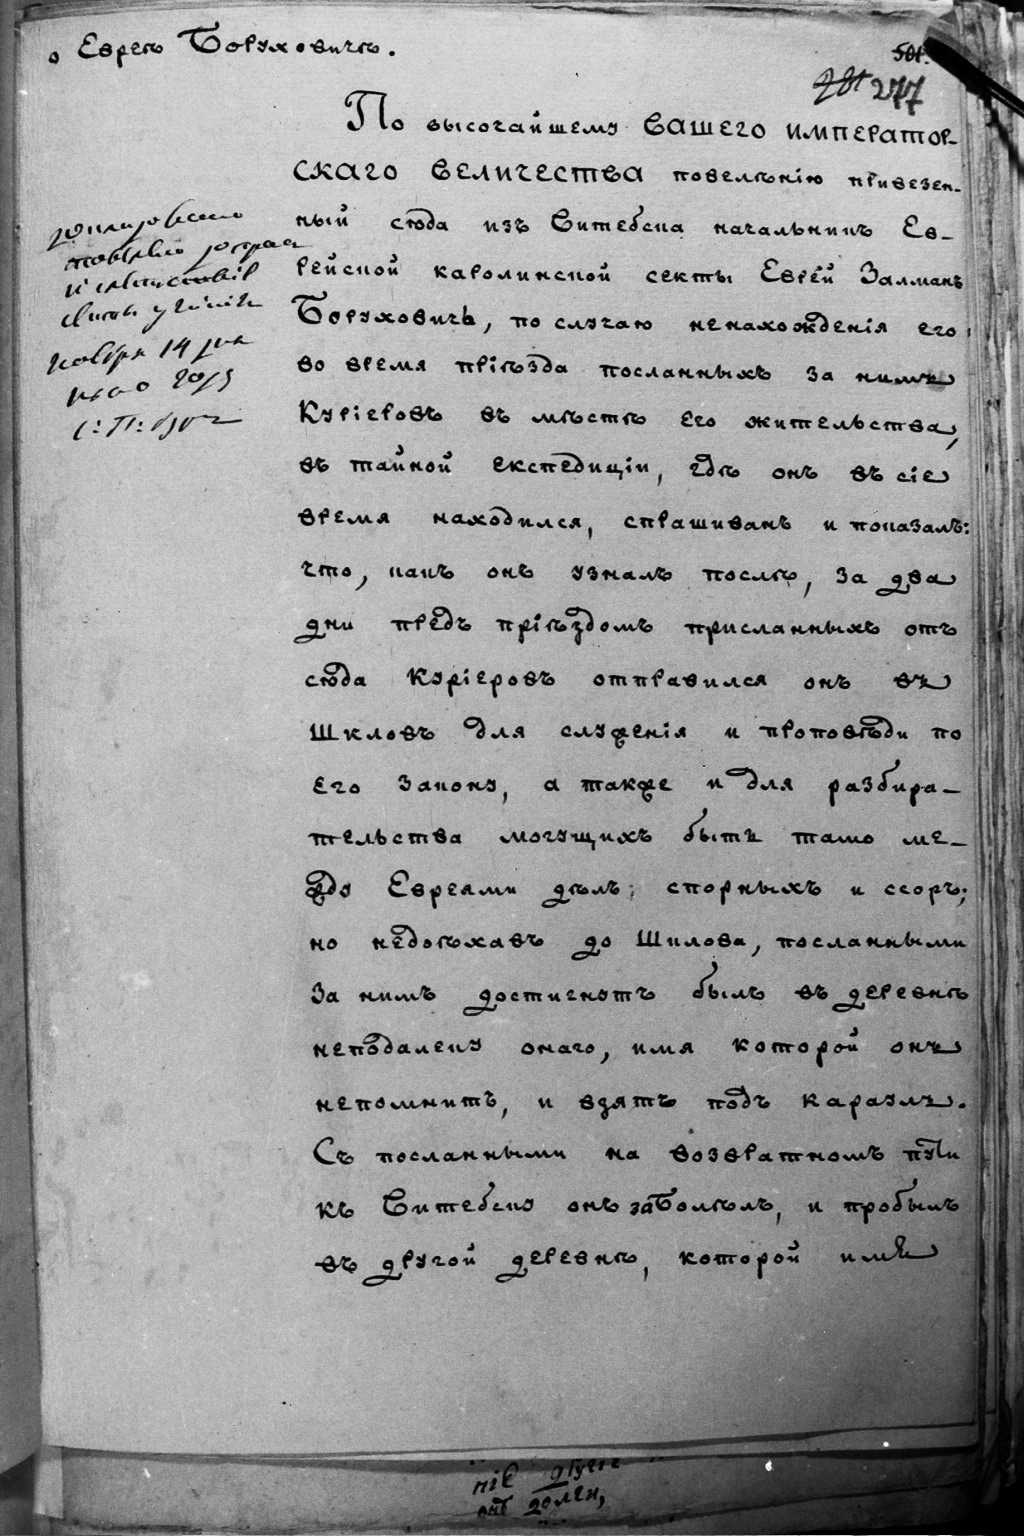 о Еврѣѣ Боруховичѣ.
501.
281 277
По высочайшему ВАШЕГО ИМПЕРАТОР-
СКАГО ВЕЛИЧЕСТВА повелѣнію привезен-
ный сюда изъ Витебска начальникъ Ев-
рейской каролинской секты Еврей Залманъ
Боруховичь, по случаю ненахожденія его
во время пріѣзда посланныхъ за нимъ
Куріеровъ въ мѣстѣ его жительства,
въ тайной експедиціи, гдѣ онъ въ сіе
время находился, спрашиванъ и показалъ:
что, какъ онъ узналъ послѣ, за два
дни предъ пріѣздомъ присланныхъ отъ
сюда Куріеровъ отправился онъ въ
Шкловъ для служенія и проповѣди по
его закону, а также и для разбира-
тельства могущихъ быть тамо ме-
жду Евреями дѣлъ спорныхъ и ссоръ;
но недоѣхавъ до Шклова, посланными
за нимъ достигнутъ былъ въ деревнѣ
неподалеку онаго, имя которой онъ
непомнитъ, и взятъ подъ караулъ.
Съ посланными на возвратномъ пути
къ Витебску онъ заболѣлъ, и пробылъ
въ другой деревнѣ, которой имя
ноября 14 дня